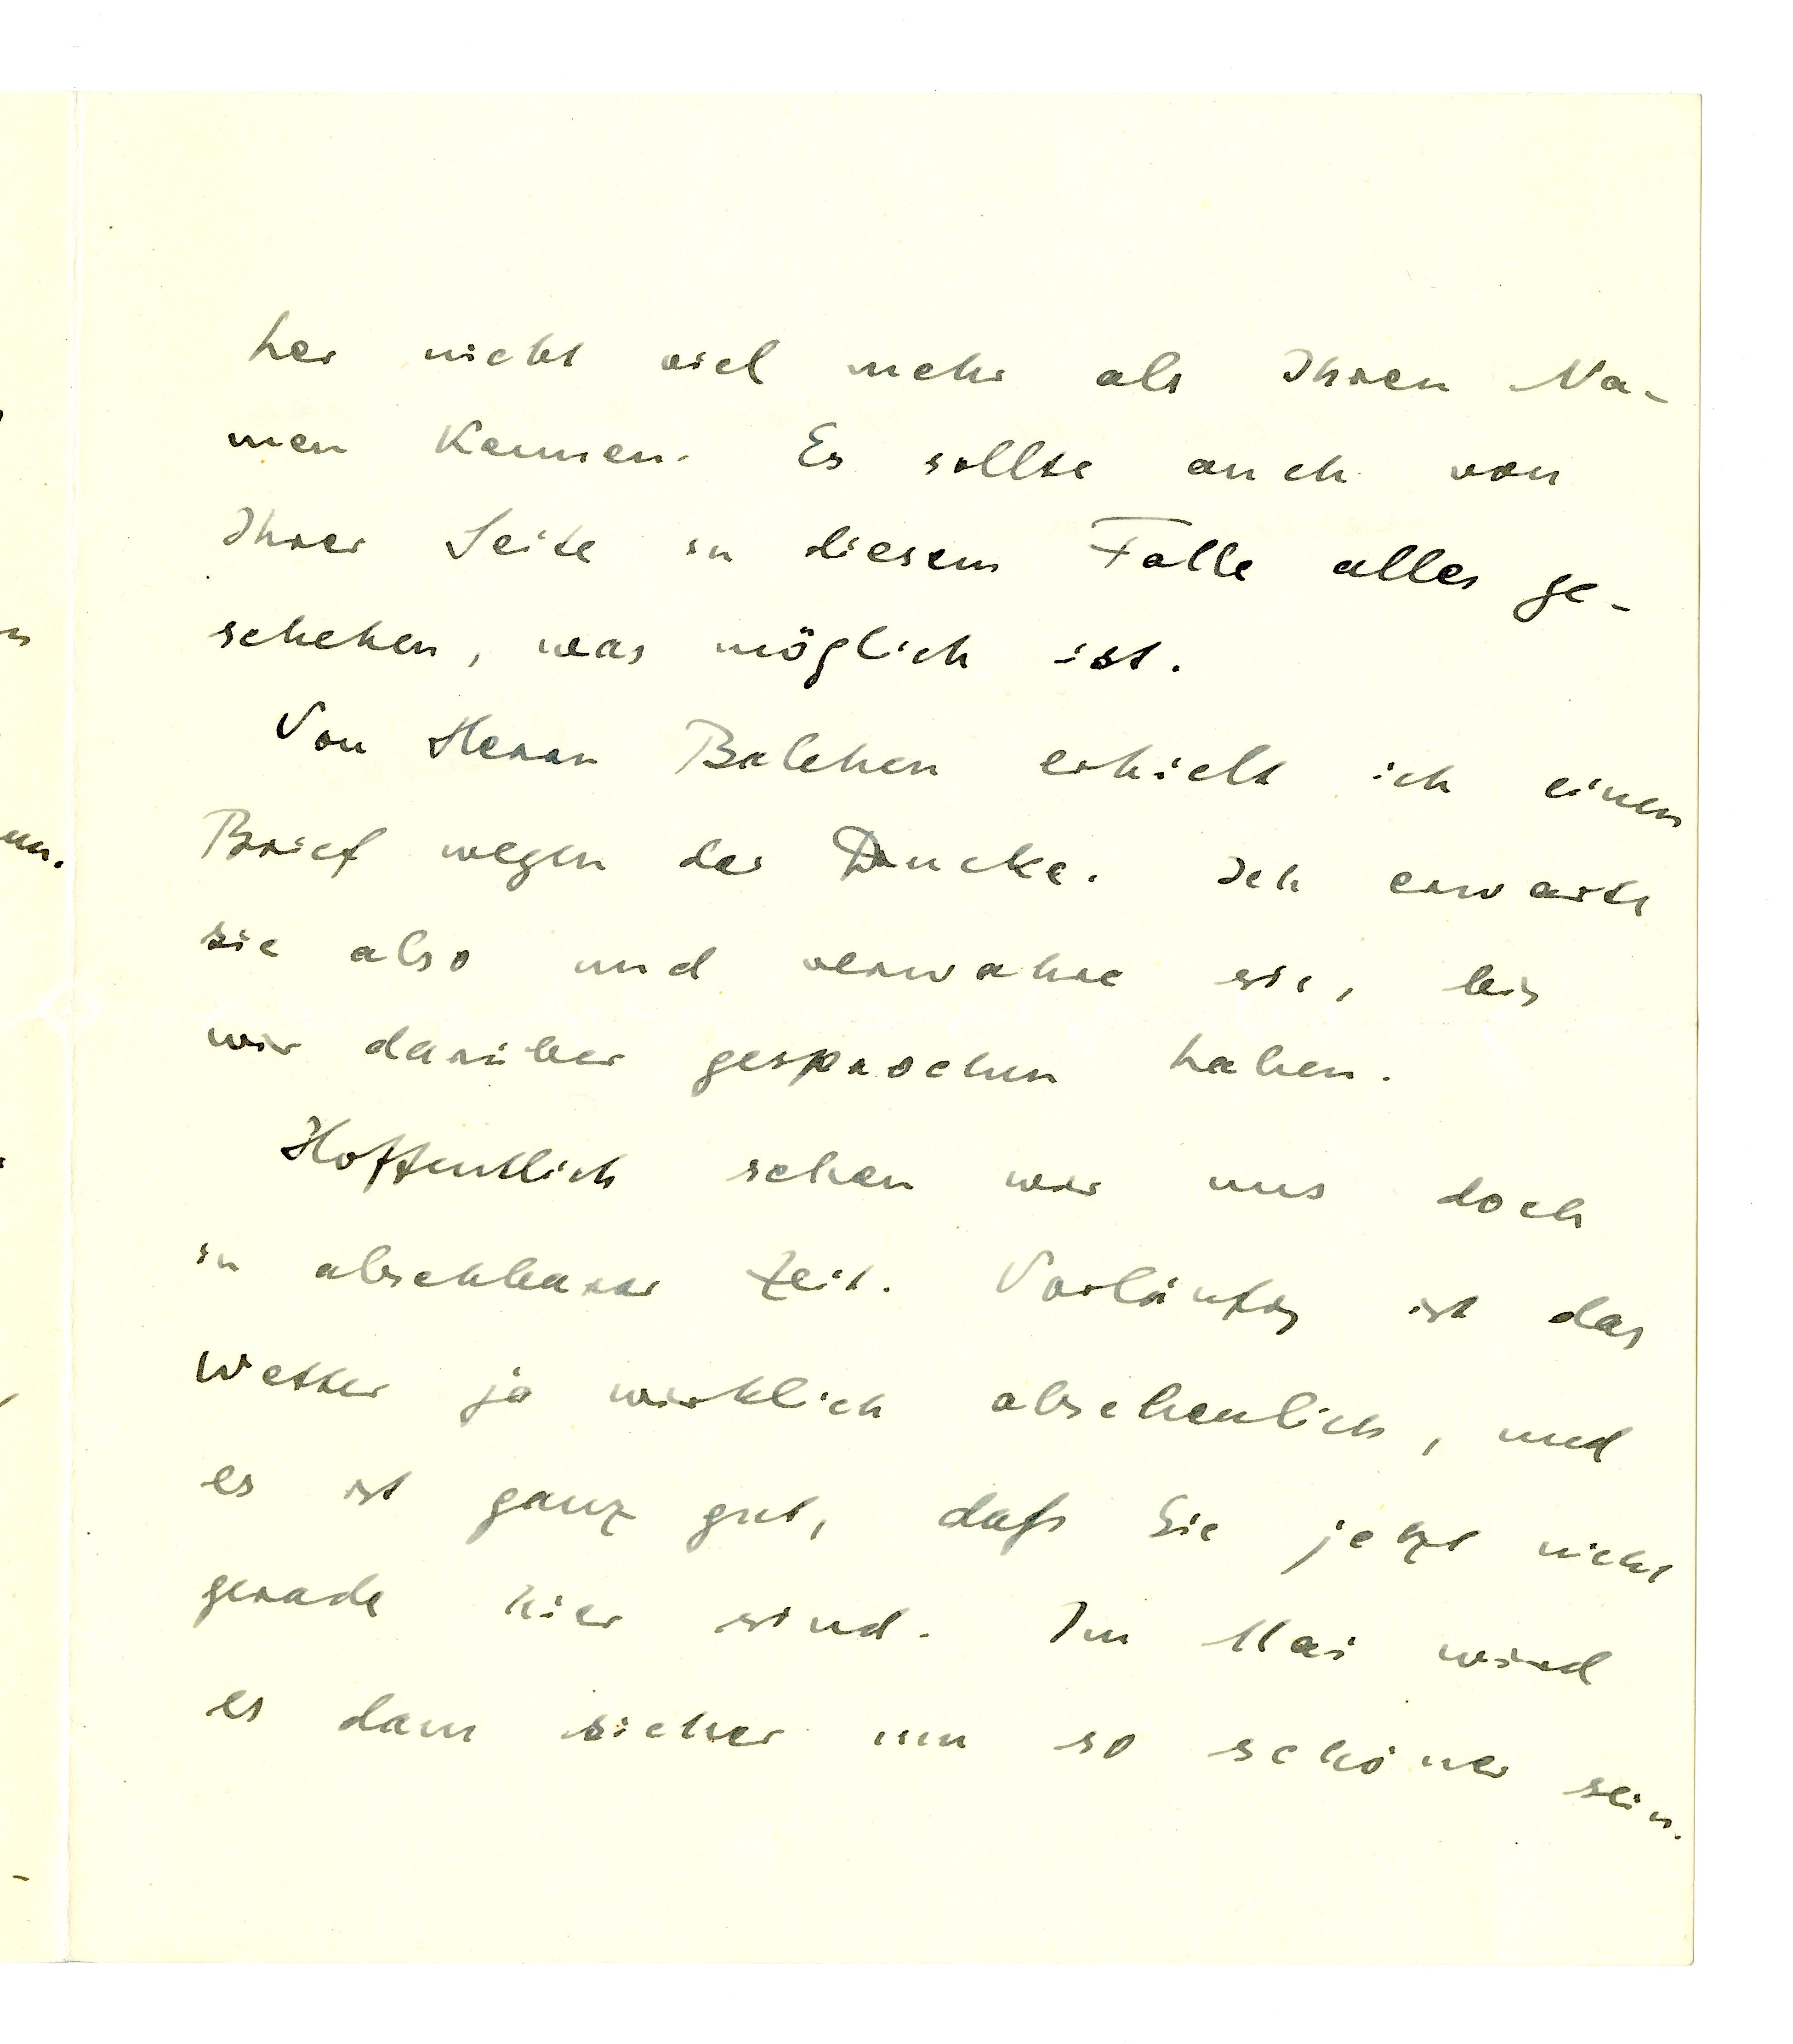 her nicht viel mehr als Ihren Na-
men kennen. Es sollte auch von
Ihrer Seite in diesem Falle alles ge-
schehen, was möglich ist.
Von Herrn Balchen erhielt ich einen
Brief wegen der Drucke. Ich erwarte
sie also und verwahre sie, bis
wir darüber gesprochen haben.
Hoffentlich sehen wir uns doch
in absehbarer Zeit. Vorläufig ist das
Wetter ja wirklich abscheulich, und
es ist ganz gut, daß Sie jetzt nicht
gerade hier sind. Im Mai wird
es dann sicher um so schöner sein.